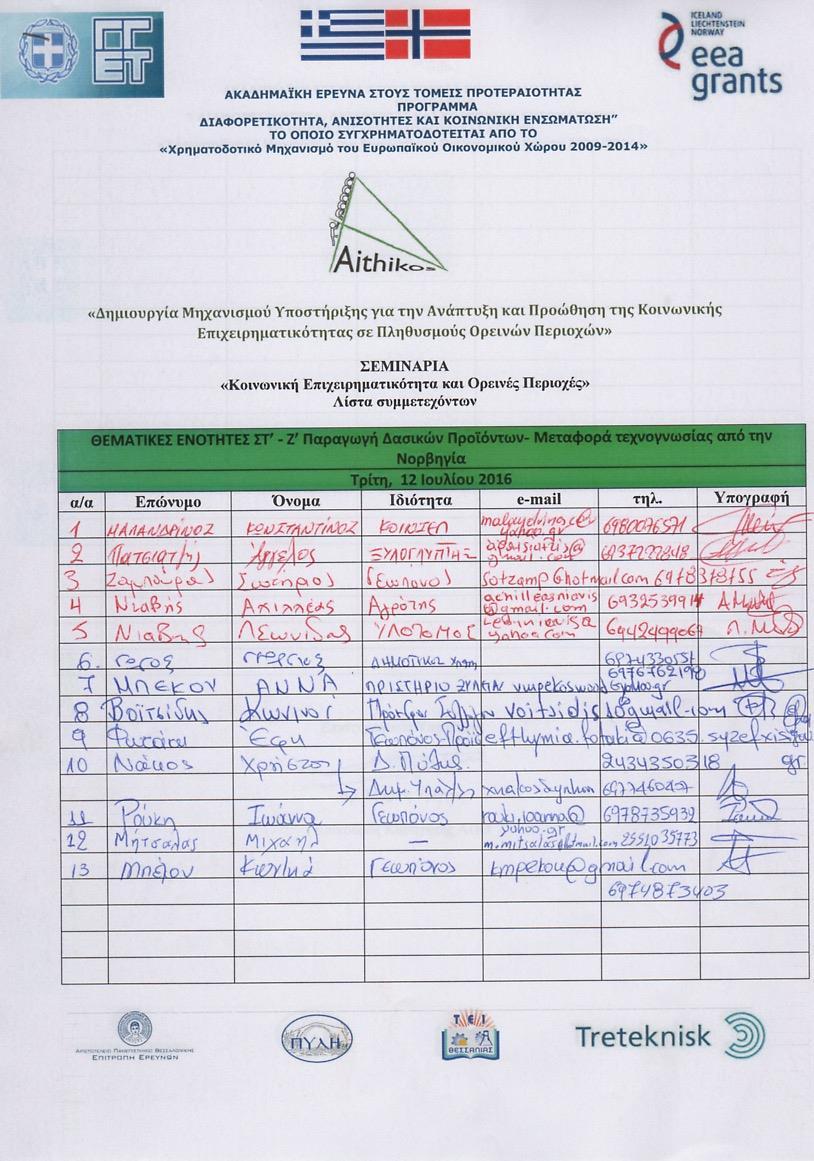 ΓΓΕΤ
ICELAND
LIECHTENSTEIN
NORWAY
eea
grants
ΑΚΑΔΗΜΑΪΚΗ ΕΡΕΥΝΑ ΣΤΟΥΣ ΤΟΜΕΙΣ ΠΡΟΤΕΡΑΙΟΤΗΤΑΣ
ΠΡΟΓΡΑΜΜΑ
ΔΙΑΦΟΡΕΤΙΚΟΤΗΤΑ, ΑΝΙΣΟΤΗΤΕΣ ΚΑΙ ΚΟΙΝΩΝΙΚΗ ΕΝΣΩΜΑΤΩΣΗ”
ΤΟ ΟΠΟΙΟ ΣΥΓΧΡΗΜΑΤΟΔΟΤΕΙΤΑΙ ΑΠΟ ΤΟ
«Χρηματοδοτικό Μηχανισμό του Ευρωπαϊκού Οικονομικού Χώρου 2009-2014»
Aithikos
«Δημιουργία Μηχανισμού Υποστήριξης για την Ανάπτυξη και Προώθηση της Κοινωνικής
Επιχειρηματικότητας σε Πληθυσμούς Ορεινών Περιοχών»
ΣΕΜΙΝΑΡΙΑ
«Κοινωνική Επιχειρηματικότητα και Ορεινές Περιοχές»
Λίστα συμμετεχόντων
ΘΕΜΑΤΙΚΕΣ ΕΝΟΤΗΤΕΣ ΣΤ’ - Ζ’ Παραγωγή Δασικών Προϊόντων- Μεταφορά τεχνογνωσίας από την
Νορβηγία
Τρίτη, 12 Ιουλίου 2016
α/α Επώνυμο Όνομα Ιδιότητα e-mail τηλ. Υπογραφή
1 ΜΑΛΑΝΔΡΙΝΟΣ ΚΩΝΣΤΑΝΤΙΝΟΣ ΚΟΙΝΣΕΠ yahoo.gr 6980076571
2 Άγγελος ΞΥΛΟΓΛΥΠΤΗΣ gmail.com
3 Ζαμπούρας Σωτήριος Γεωπόνος sotzamp@hotmail.com 6978378755
4 Νιαβής Αχιλλέας Αγρότης achilleasniavis@gmail.com 6932539914
5 Νιαβης Λεωνίδας ΥΛΟΤΟΜΟΣ yahoo.com 6942499067
6. ΔΗΜΟΤΙΚΟΣ 6974330557
7 ΜΠΕΚΟΥ ΑΝΝΑ ΠΡΙΣΤΗΡΙΟ ΞΥΛΕΙΑΣ 6976762190
8 Βοϊτσίδης voitsidis
9 Φωτάκη Έφη Γεωπόνος efthymia.fotaki@0635.syzefxis.gov.gr
10 Νάκος Χρήστος Δ. Πύλης 2434350318
6977460407
11 Ρούκη Ιωάννα Γεωπόνος rouki.ioanna@yahoo.gr 6978735932
12 Μήτσαλας Μιχαήλ — m.mitsalas@hotmail.com 2551035773
13 Μπέκου Γεωπόνος kmpekou@gmail.com
6974873403
ΑΡΙΣΤΟΤΕΛΕΙΟ ΠΑΝΕΠΙΣΤΗΜΙΟ ΘΕΣΣΑΛΟΝΙΚΗΣ
ΕΠΙΤΡΟΠΗ ΕΡΕΥΝΩΝ
ΠΥΛΗ
ΤΕΙ
ΘΕΣΣΑΛΙΑΣ
Treteknisk